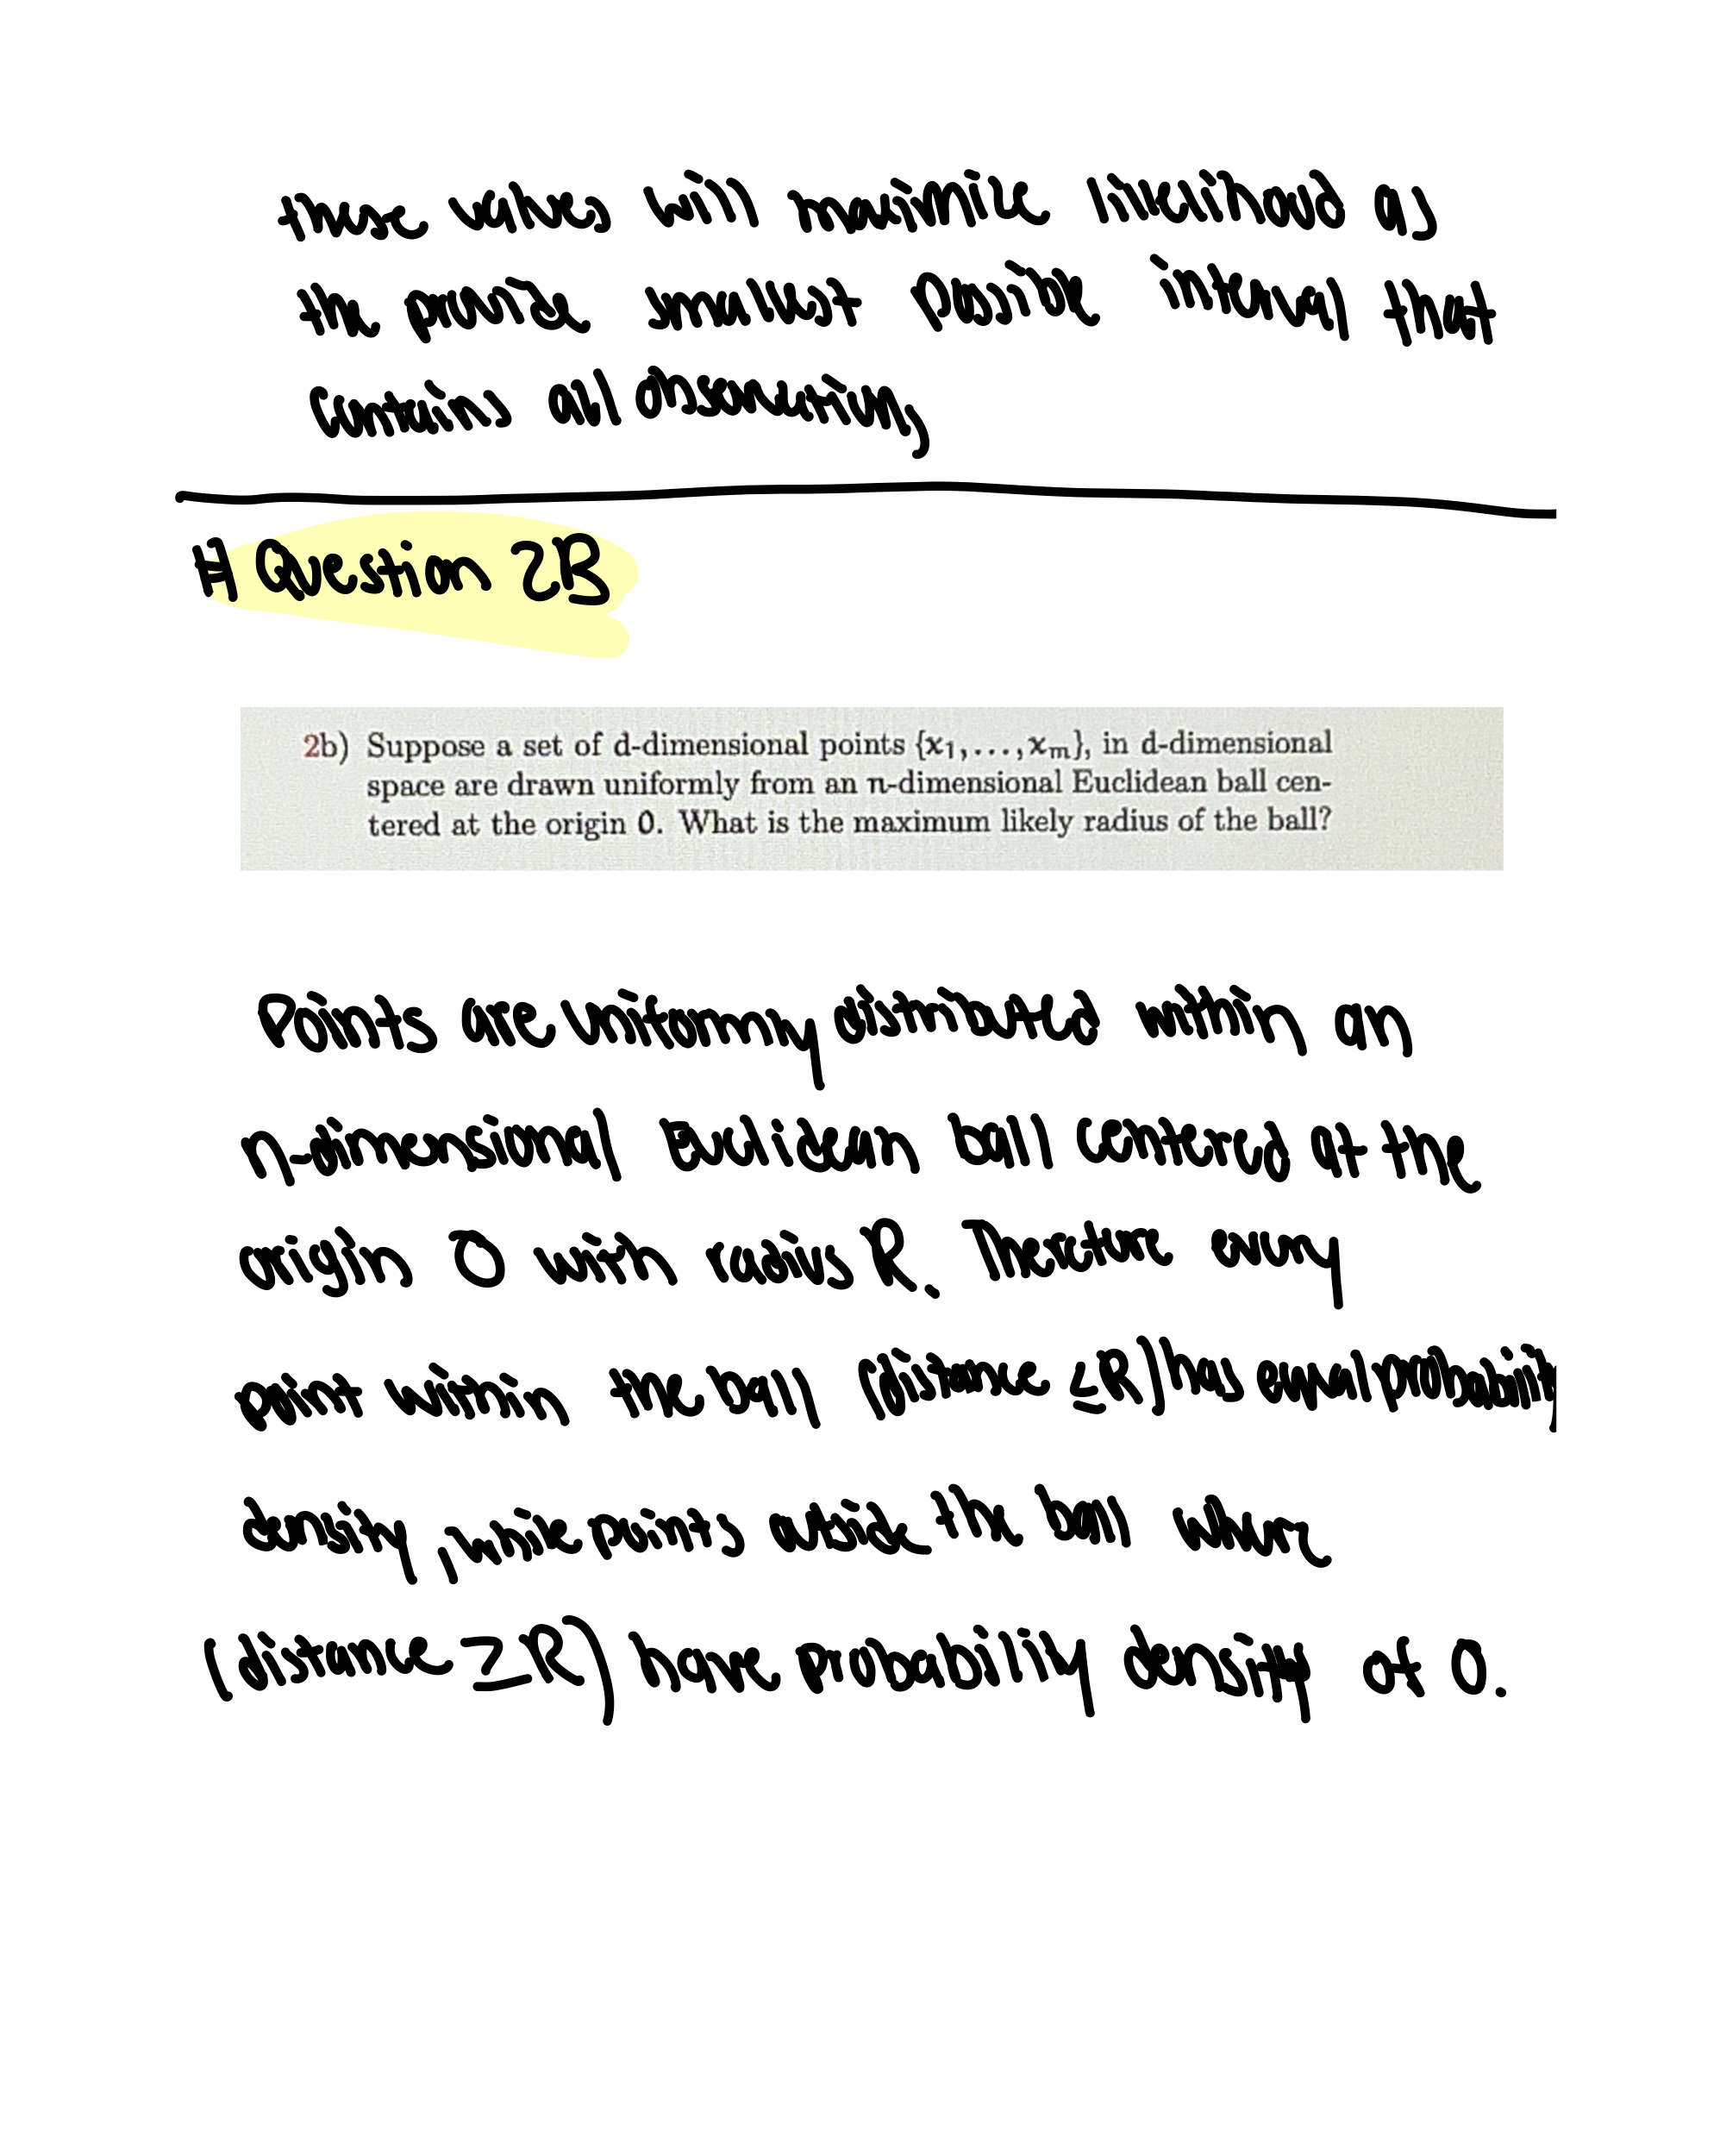 these values will maximize likelihood as
the provide smallest possible interval that
contains all observation,
# Question 2B
2b) Suppose a set of d-dimensional points {x₁, . . . , xₘ}, in d-dimensional
space are drawn uniformly from an n-dimensional Euclidean ball cen-
tered at the origin 0. What is the maximum likely radius of the ball?
Points are uniformly distributed within an
n-dimensional Euclidean ball centered at the
origin O with radius R. Therefore every
point within the ball (distance ≤R) has equal probability
density, while points outside the ball where
(distance ≥R) have probability density of 0.